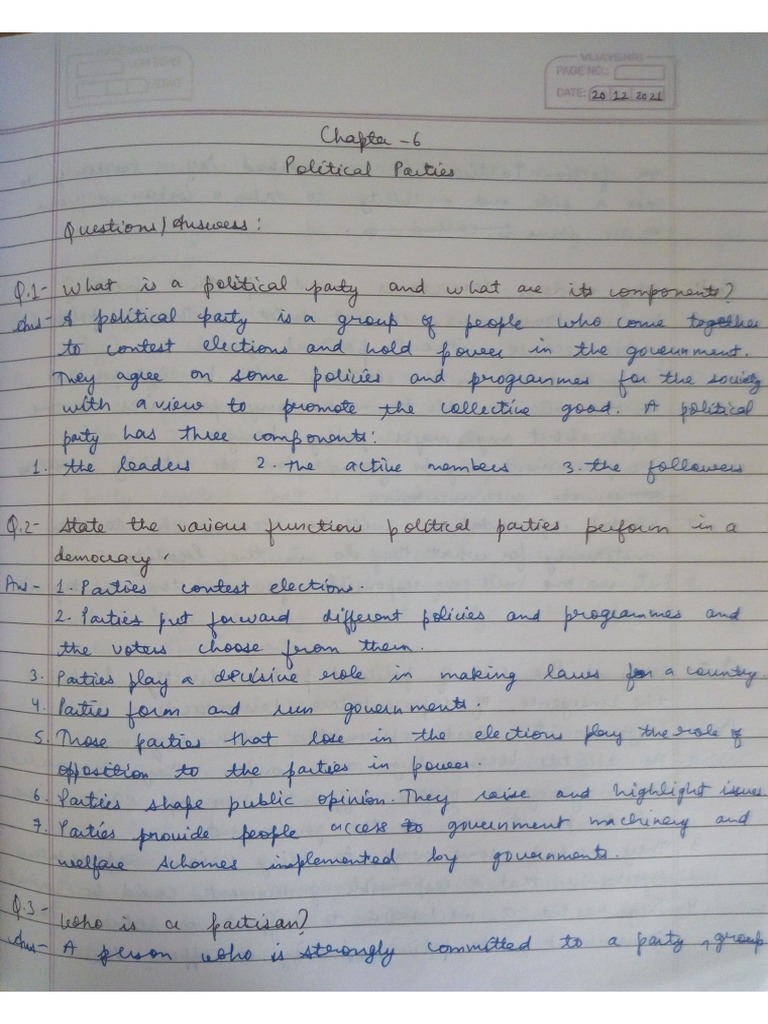 VIJAYSHRI
PAGE NO.:
DATE: 20 12 2021
Chapter - 6
Political Parties
Questions/Answers:
Q.1- What is a political party and what are its components?
Ans- A political party is a group of people who come together
to contest elections and hold power in the government.
They agree on some policies and programmes for the society
with a view to promote the collective good. A political
party has three components:
1. the leaders 2. the active members 3. the followers
Q.2- State the various function political parties perform in a
democracy.
Ans- 1. Parties contest elections.
2. Parties put forward different policies and programmes and
the voters choose from them.
3. Parties play a decisive role in making laws for a country.
4. Parties form and run governments.
5. Those parties that lose in the elections play the role of
opposition to the parties in power.
6. Parties shape public opinion. They raise and highlight issues
7. Parties provide people access to government machinery and
welfare schemes implemented by governments.
Q.3- Who is a partisan?
Ans- A person who is strongly committed to a party, group